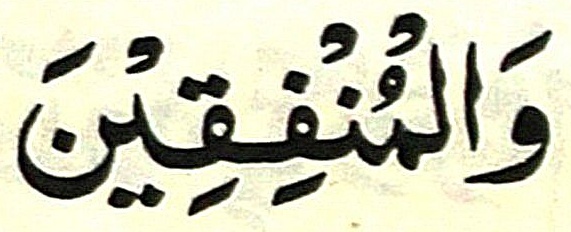 وَالْمُنْفِقِيْنَ